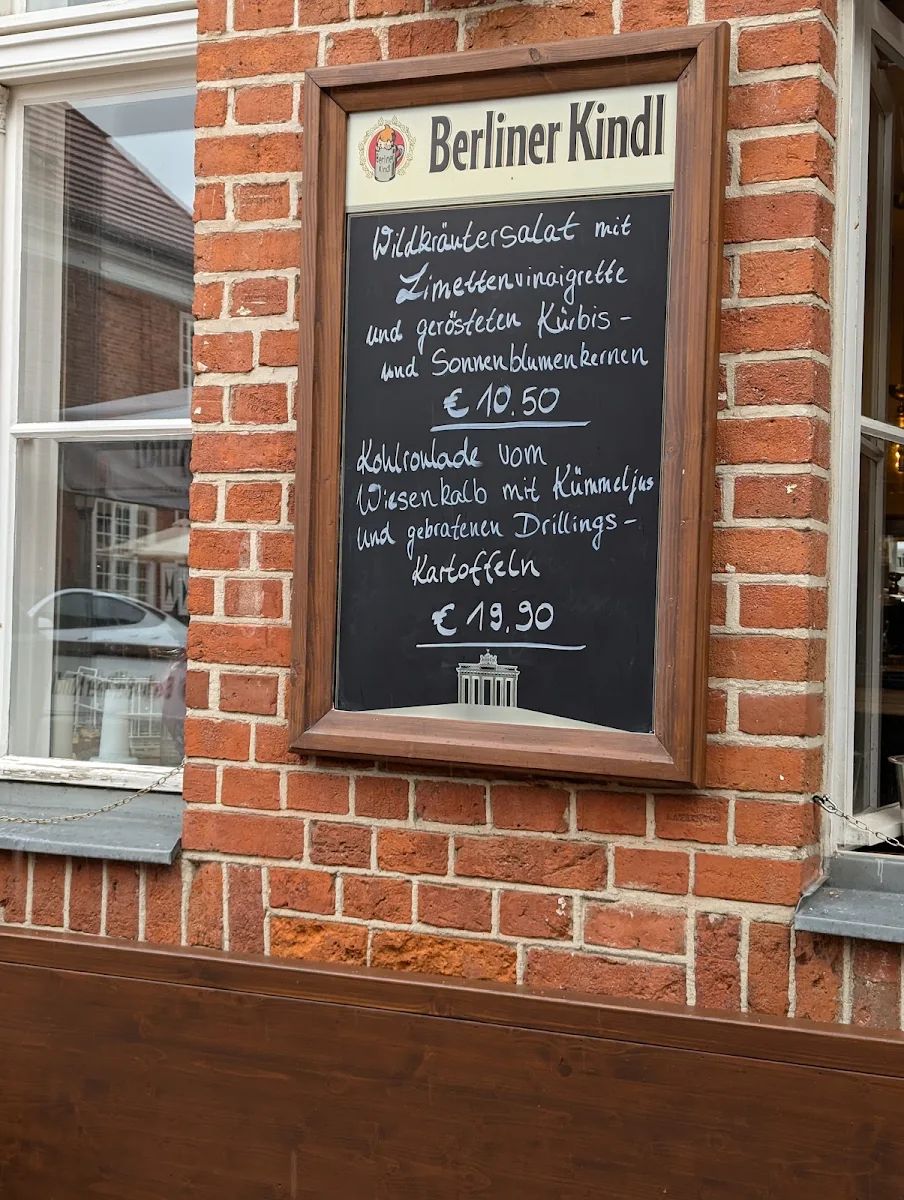 Berliner Kindl
Berliner Kindl
Wildkräutersalat mit
Limettenvinaigrette
und gerösteten Kürbis-
und Sonnenblumenkernen
€ 10.50
Kohlroulade vom
Wiesenkalb mit Kümmeljus
und gebratenen Drillings-
Kartoffeln
€ 19.90